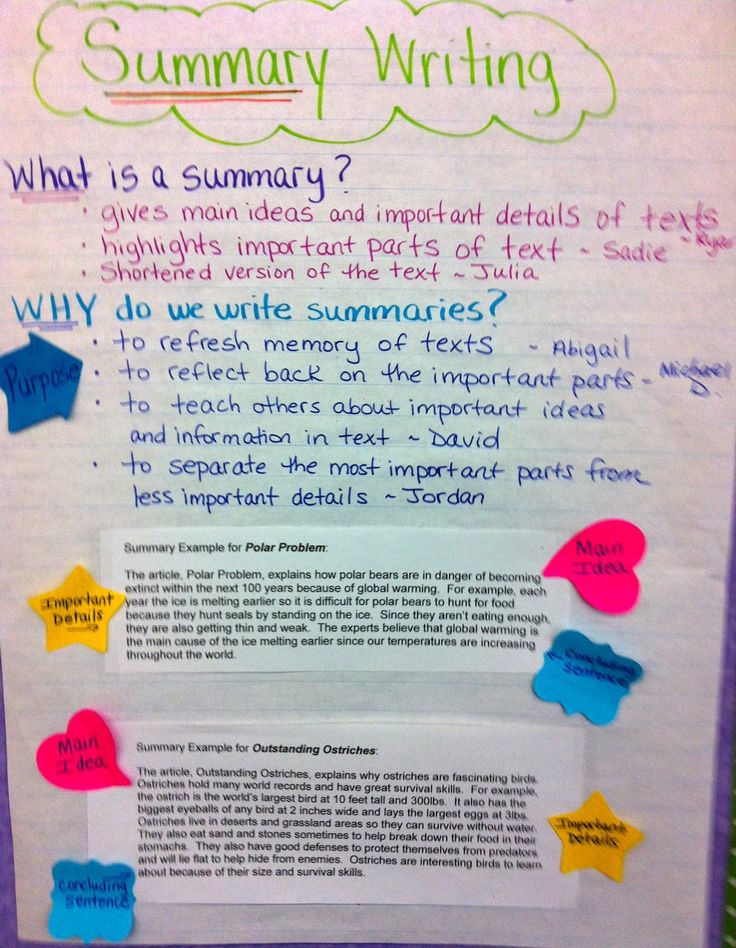 Summary Writing
What is a summary?
· gives main ideas and important details of texts ~ Ryan
· highlights important parts of text ~ Sadie
· Shortened version of the text ~ Julia
WHY do we write summaries?
Purpose
· to refresh memory of texts ~ Abigail
· to reflect back on the important parts ~ Michael D.
· to teach others about important ideas
and information in text ~ David
· to separate the most important parts from
less important details ~ Jordan
Summary Example for Polar Problem:
Main Idea
The article, Polar Problem, explains how polar bears are in danger of becoming
extinct within the next 100 years because of global warming. For example, each
year the ice is melting earlier so it is difficult for polar bears to hunt for food
because they hunt seals by standing on the ice. Since they aren't eating enough,
they are also getting thin and weak. The experts believe that global warming is
the main cause of the ice melting earlier since our temperatures are increasing
throughout the world.
Important Details
Concluding Sentence
Main Idea
Summary Example for Outstanding Ostriches:
The article, Outstanding Ostriches, explains why ostriches are fascinating birds.
Ostriches hold many world records and have great survival skills. For example,
the ostrich is the world's largest bird at 10 feet tall and 300lbs. It also has the
biggest eyeballs of any bird at 2 inches wide and lays the largest eggs at 3lbs.
Ostriches live in deserts and grassland areas so they can survive without water.
They also eat sand and stones sometimes to help break down their food in their
stomachs. They also have good defenses to protect themselves from predators
and will lie flat to help hide from enemies. Ostriches are interesting birds to learn
about because of their size and survival skills.
Important Details
Concluding Sentence